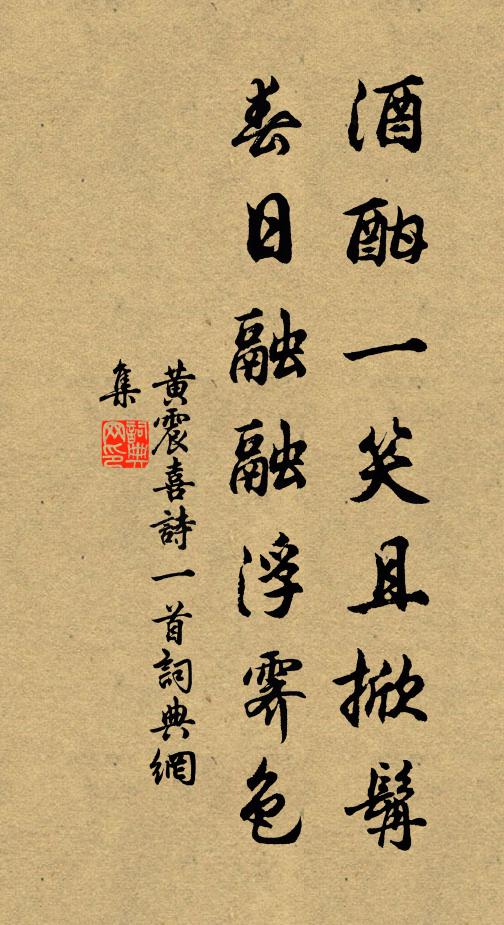 酒酣一笑且掀髯
春日融融浮霽色
黄震喜詩一首詞典網
集
詞典
网印